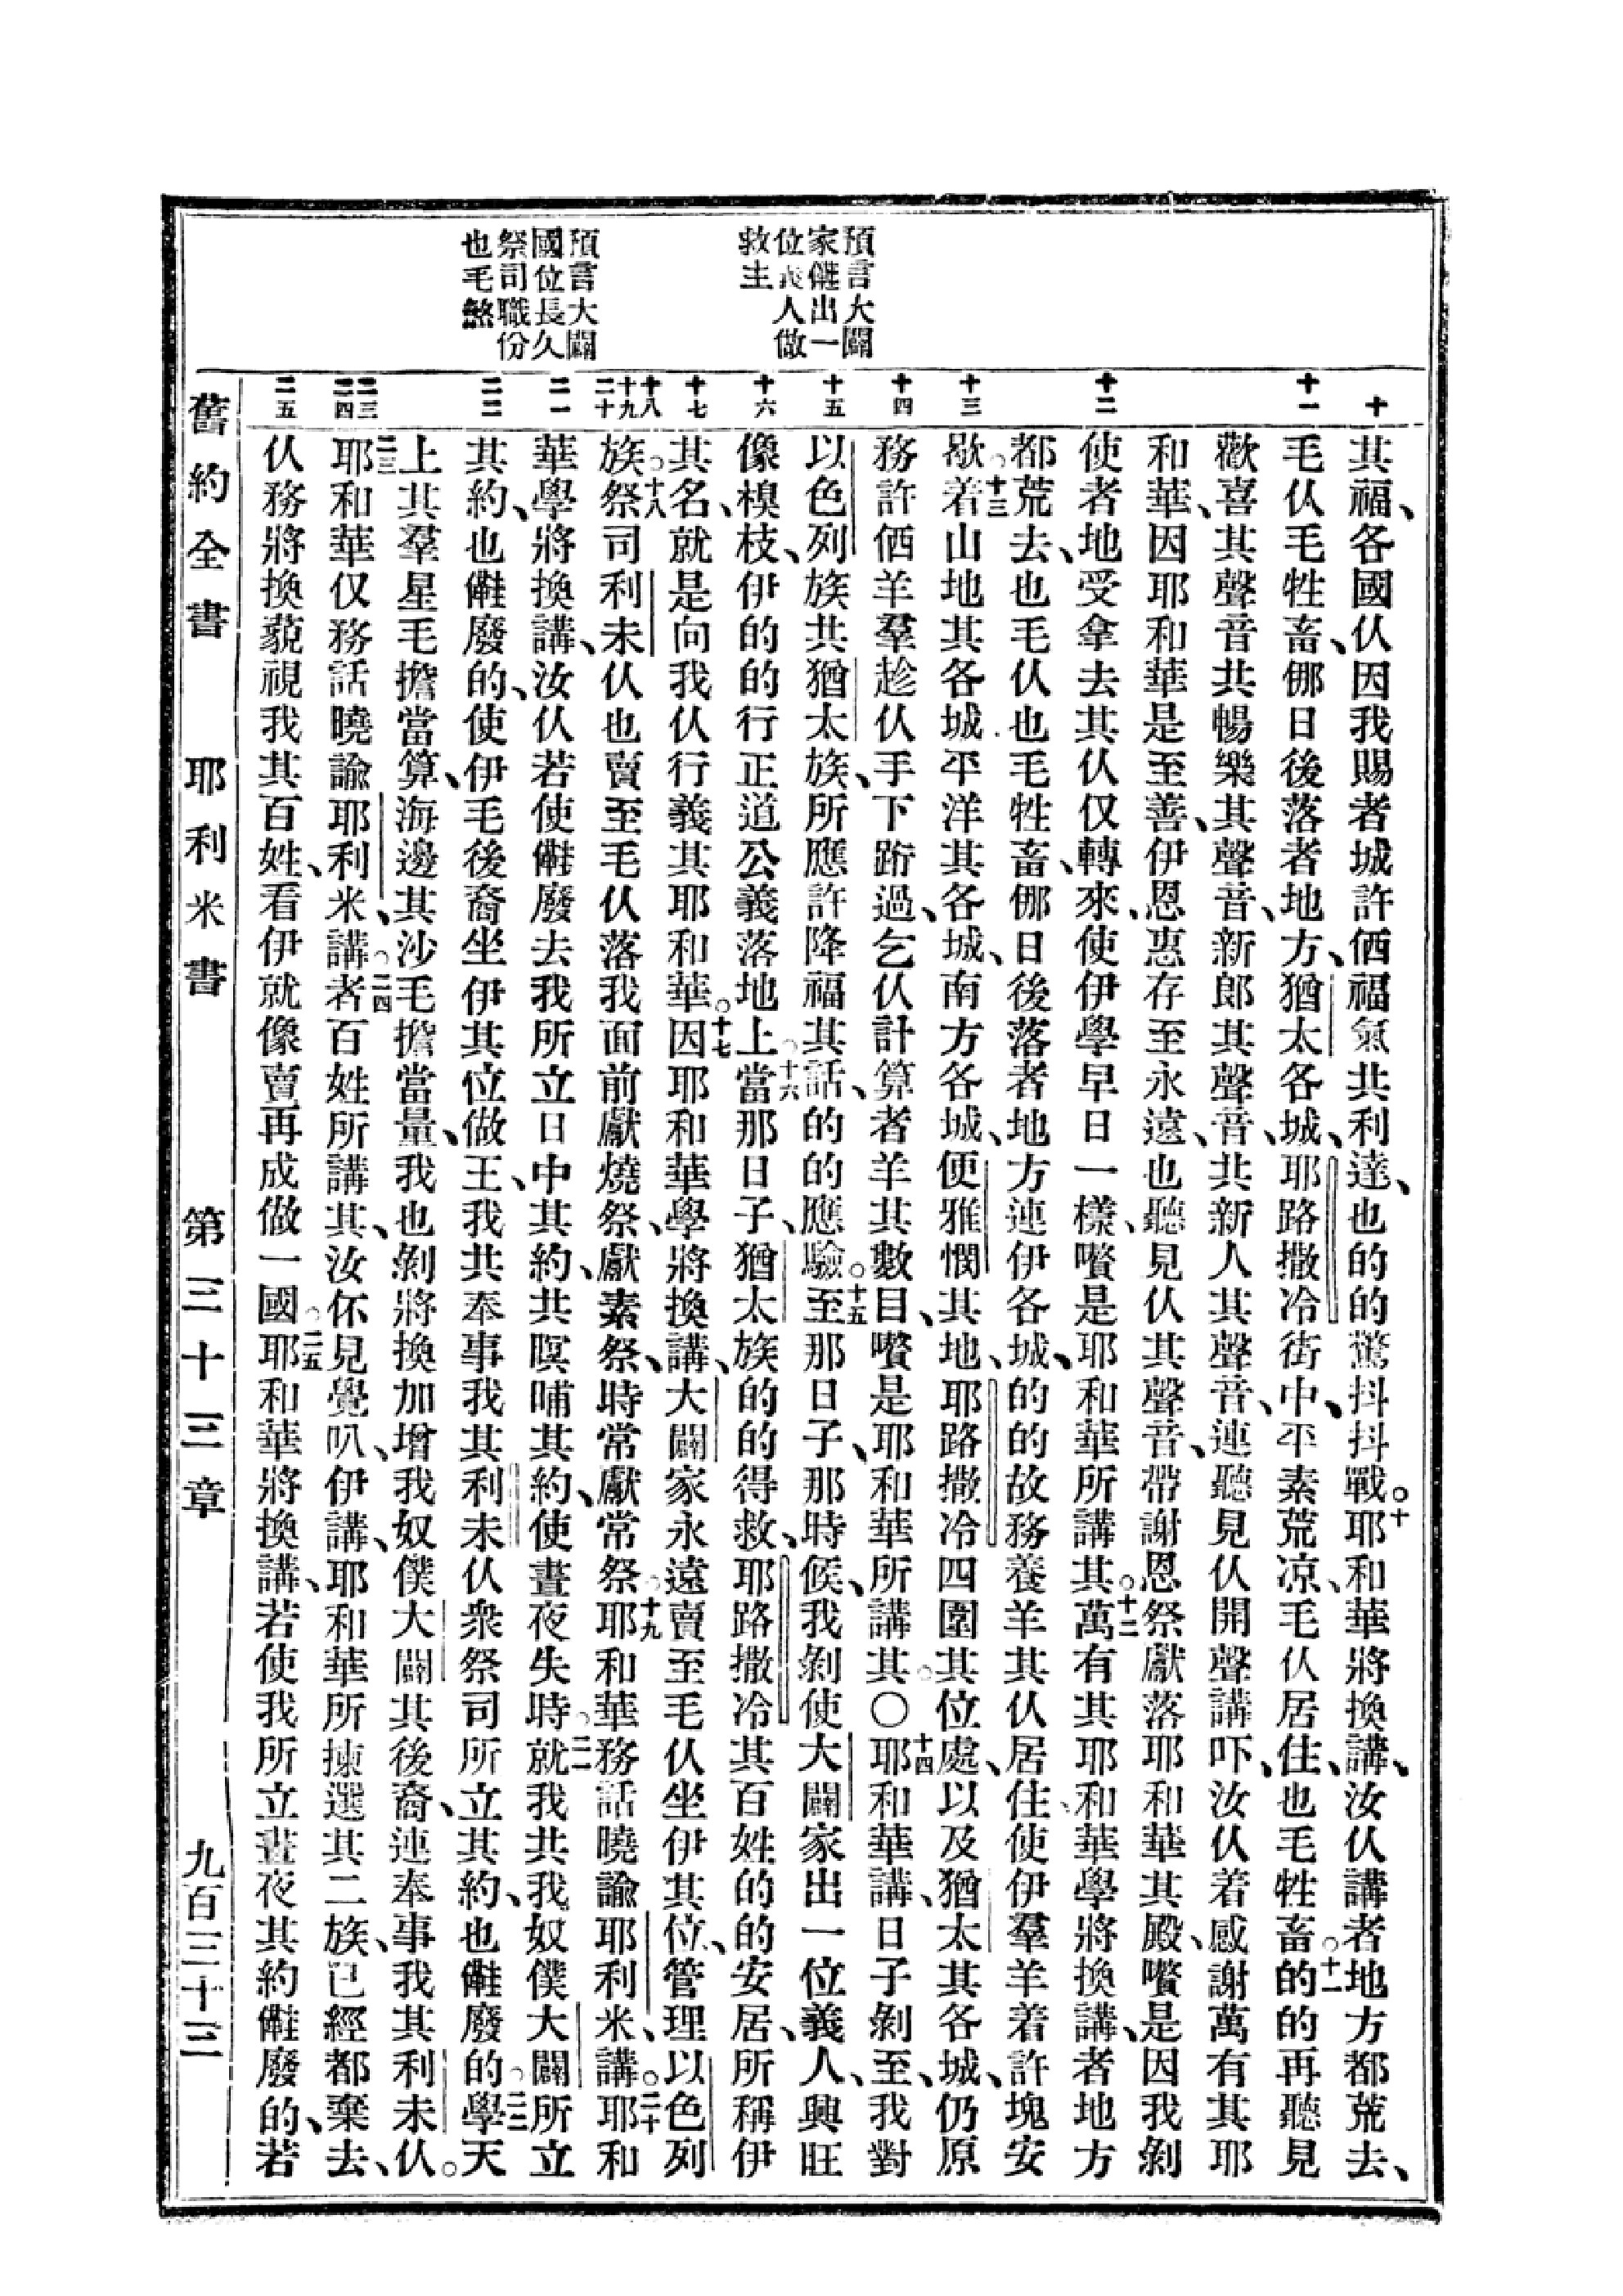 預言大闢
家僆出一
位義人做
救主
預言大闢
國位長久
祭司職份
也毛煞
十
十一
十二
十三
十四
十五
十六
十七
十八
十九
二十
二一
二二
二三
二四
二五
其福、各國仈因我賜者城許優福氣共利達、也的的驚抖抖戰。十耶和華將換講、汝仈講者地方都荒去、
毛仈毛牲畜、那日後落者地方、猶太各城、耶路撒冷街中、平素荒凉、毛仈居住、也毛牲畜。十一的的再聽見
歡喜其聲音共暢樂其聲音、新郎其聲音、共新人其聲音、連聽見仈開聲講吓、汝仈着感謝萬有其耶
和華、因耶和華是至善、伊恩惠存至永遠、也聽見仈其聲音、帶謝恩祭獻落耶和華其殿、嚽是因我剝
使者地受拿去其仈仅轉來、使伊學早日一樣、嚽是耶和華所講其。十二萬有其耶和華學將換講、者地方
都荒去、也毛仈也毛牲畜、那日後落者地方連伊各城、的的故務養羊其仈居住、使伊羣羊着許塊安
歇。十三着山地其各城、平洋其各城、南方各城、便雅憫其地、耶路撒冷四圍其位處、以及猶太其各城、仍原
務許優羊羣趁仈手下跨過、乞仈計算者羊其數目、嚽是耶和華所講其。〇十四耶和華講、日子剝至、我對
以色列族共猶太族、所應許降福其話、的的應驗。十五至那日子、那時候、我剝使大闢家出一位義人、興旺
像橂枝、伊的的行正道公義落地上。十六當那日子、猶太族的的得救、耶路撒冷其百姓的的安居、所稱伊
其名、就是向我仈行義其耶和華。十七因耶和華學將換講、大闢家永遠賣至毛仈坐伊其位、管理以色列
族。十八祭司利未仈也賣至毛仈落我面前獻燒祭、獻素祭、時常獻常祭。十九耶和華務話曉諭耶利米、講。二十耶和
華學將換講、汝仈若使𣍐廢去我所立日中其約、共暝晡其約、使晝夜失時。二一就我共我奴僕大闢所立
其約、也𣍐廢的、使伊毛後裔坐伊其位做王、我共奉事我其利未仈衆祭司所立其約、也𣍐廢的。二二學天
上其羣星毛擔當算、海邊其沙毛擔當量、我也剝將換加增我奴僕大闢其後裔、連奉事我其利未仈。
二三耶和華仅務話曉諭耶利米、講。二四者百姓所講其、汝伓見覺叭、伊講、耶和華所揀選其二族、已經都棄去、
仈務將換藐視我其百姓、看伊就像賣再成做一國。二五耶和華將換講、若使我所立晝夜其約𣍐廢的、若
舊約全書　耶利米書　第三十三章　九百三十三